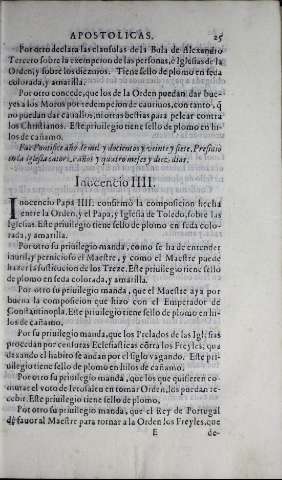 APOSTOLICAS. 25
Por otro declara las clausulas de la Bula de Alexandro
Tercero sobre la exempcion de las personas, è Iglesias de la
Orden, y sobre los diezmos. Tiene sello de plomo en seda
colorada, y amarilla.
Por otro concede, que los de la Orden puedan dar bue-
yes a los Moros por redempcion de cautiuos, con tanto, q̃
no puedan dar cauallos, ni otras bestias para pelear contra
los Christianos. Este priuilegio tiene sello de plomo en hi-
los de cañamo.
Fue Pontifice año de mil y docientos y veinte y siete, Presidio
en la Iglesia catorze años y quatro meses y diez dias.
Inocencio IIII.
Inocencio Papa IIII. confirmò la composicion hecha
entre la Orden, y el Papa, y Iglesia de Toledo, sobre las
Iglesias. Este priuilegio tiene sello de plomo en seda colo-
rada, y amarilla.
Por otro su priuilegio manda, como se ha de entender
inutil, y pernicioso el Maestre, y como el Maestre puede
hazer la sustitucion de los Treze. Este priuilegio tiene sello
de plomo en seda colorada, y amarilla.
Por otro su priuilegio manda, que el Maestre aya por
buena la composicion que hizo con el Emperador de
Constantinopla. Este priuilegio tiene sello de plomo en hi-
los de cañamo.
Por su priuilegio manda, que los Prelados de las Iglesias
procedan por censuras Eclesiasticas cõtra los Freyles, que
dexando el habito se andan por el siglo vagando. Este pri-
uilegio tiene sello de plomo en hilos de cañamo.
Por otro su priuilegio manda, que los que quisieren co-
mutar el voto de Ierusalen en tomar Orden, los puedan re-
cebir. Este priuilegio tiene sello de plomo.
Por otro su priuilegio manda, que el Rey de Portugal
dè fauor al Maestre para tornar a la Orden los Freyles, que
E de-